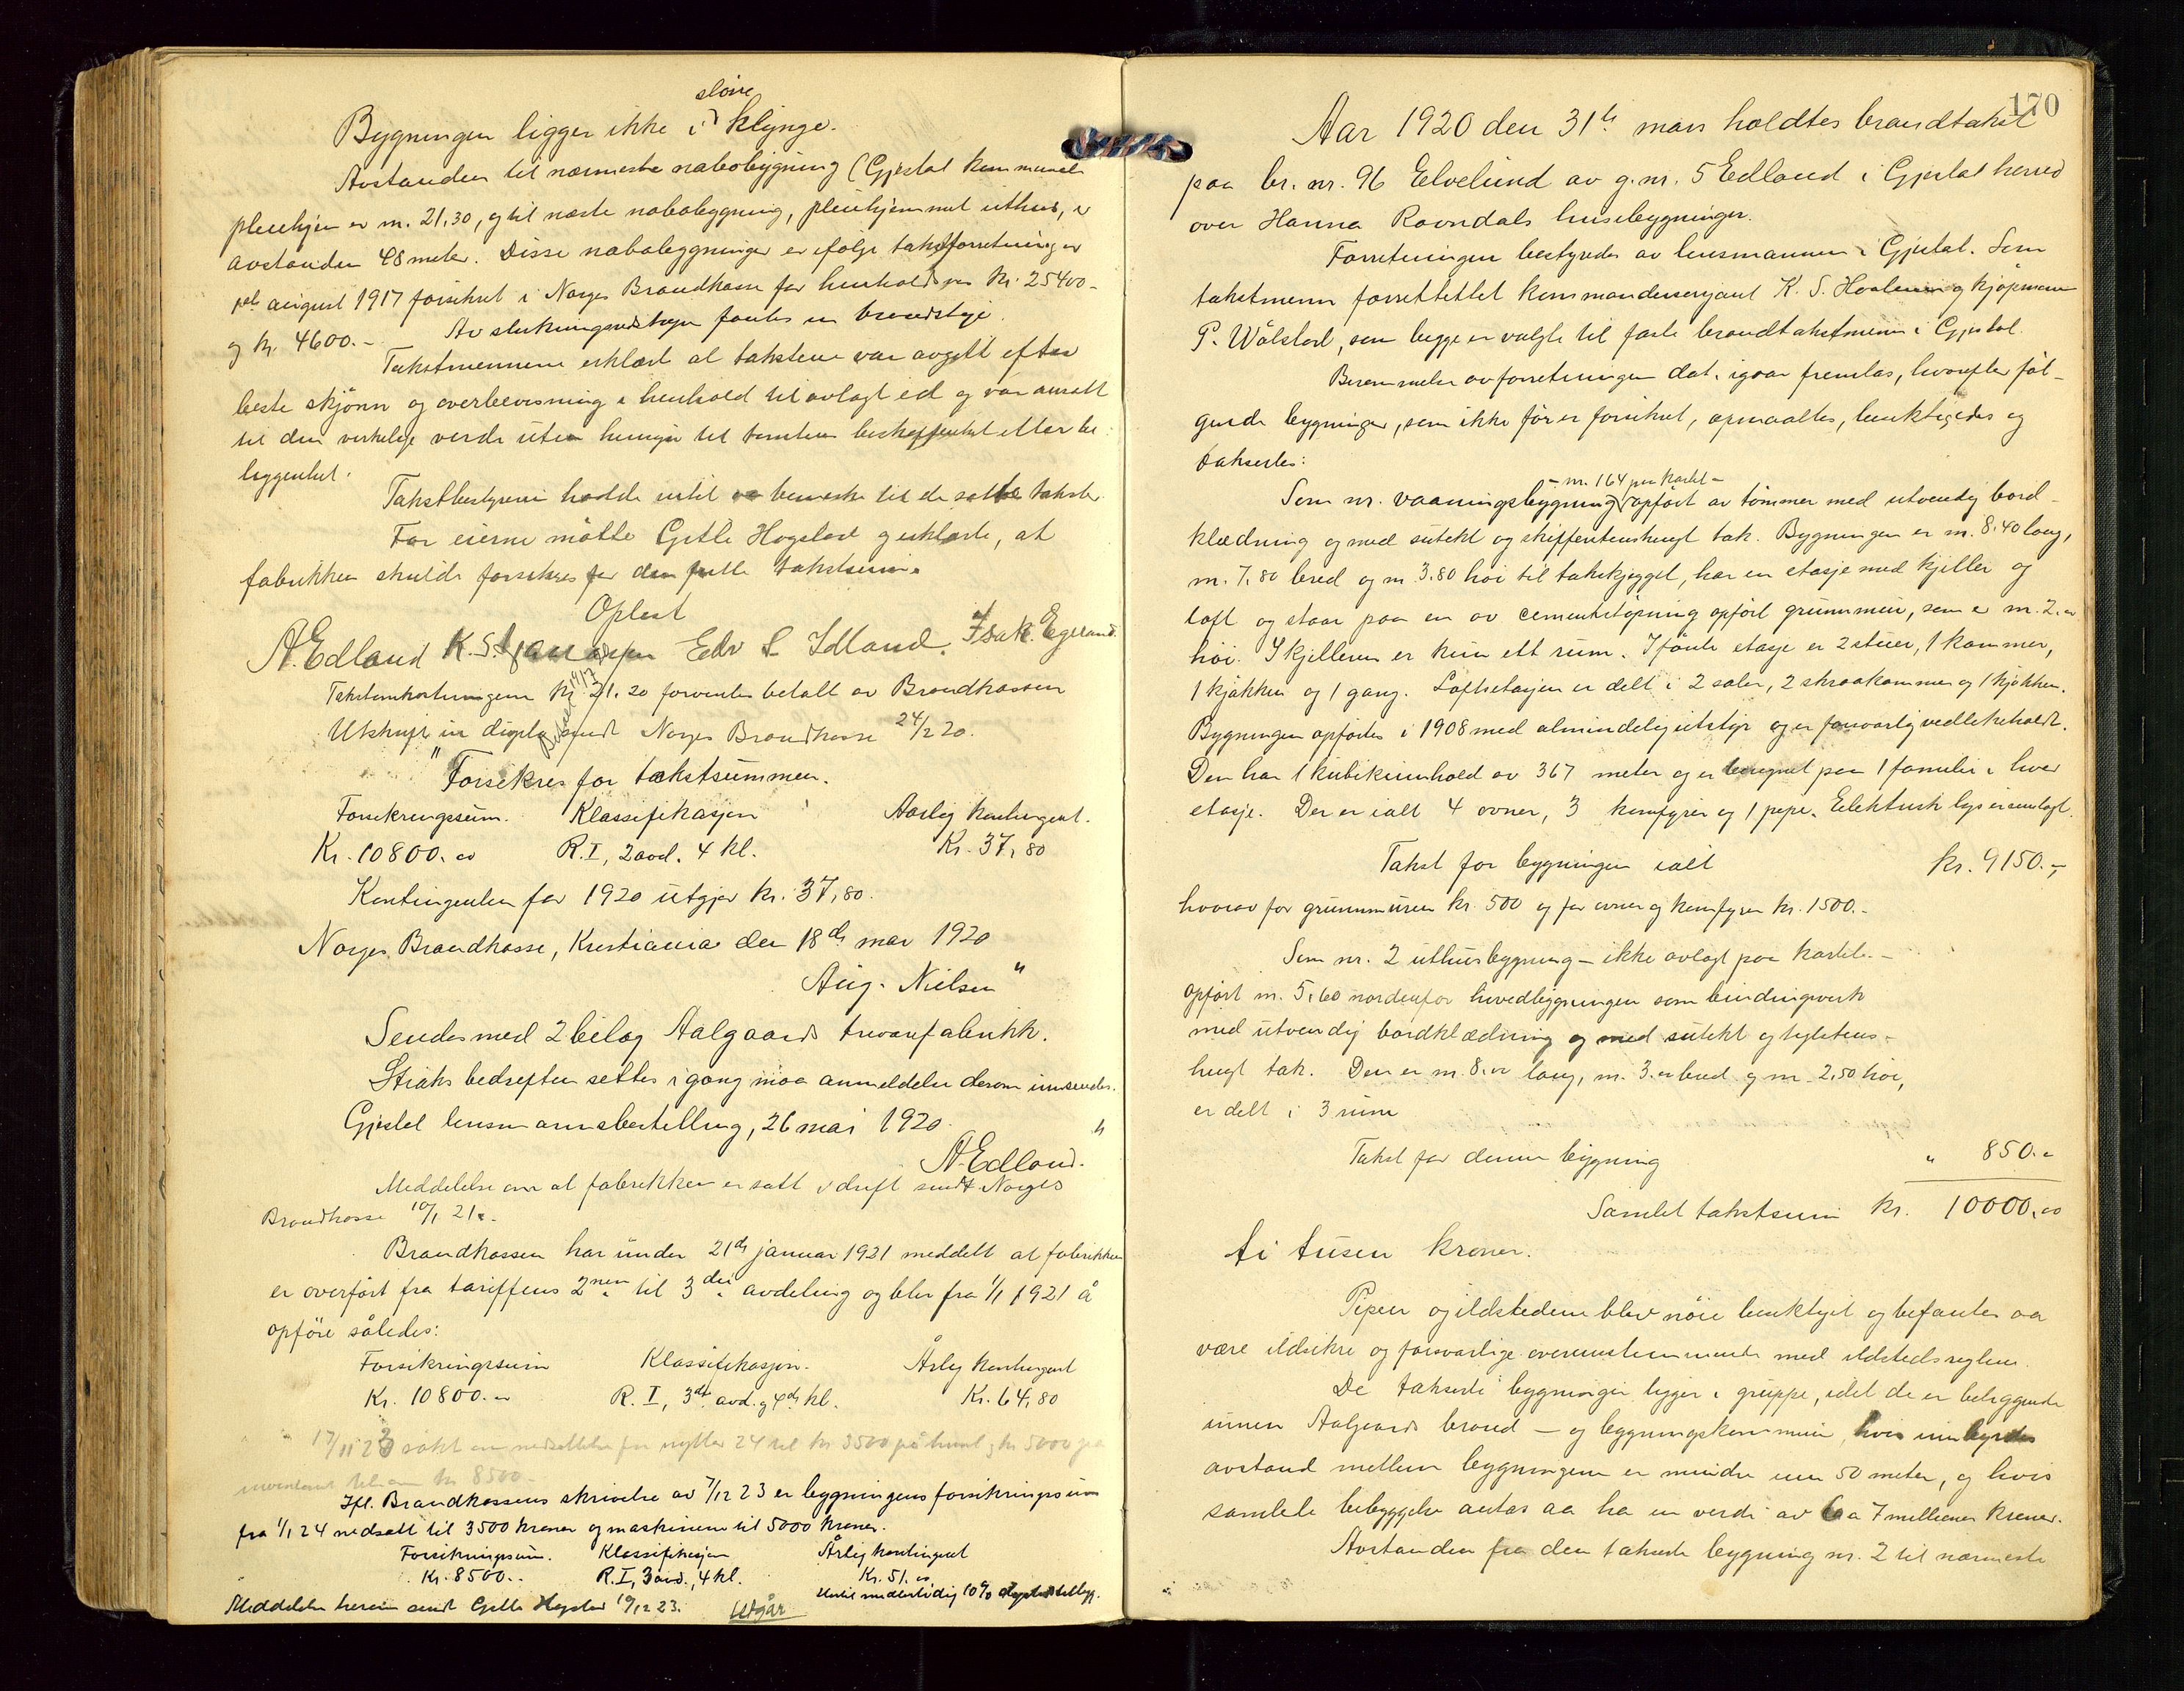 større
Bygningen ligger ikke i klynge.
Avstanden til nærmeste nabobygning (Gjestal kommunale
pleiehjem er m. 21,30, og til næste nabobygning, pleiehjemmet uthus, er
avstanden 48 meter. Disse nabobygninger er ifølge takstforretninger
august 1917 forsikret i Norges Brandkasse for henholdsvis kr. 25400.-
og kr. 4600.- Av slukningsredskaper fantes en brandstige.
Takstmennene erklærte at taksten var avgitt efter
beste skjønn og overbevisning i henhold til avlagt ed og var ansatt
til den virkelige verdi uten hensyn til tomtens beskaffenhet eller be-
liggenhet.
Takstbestyreren hadde intet at bemerke til de satte takster.
For eierne møtte Gitle Hogstad og erklærte, at
fabrikken skulde forsikres for den fulle takstsum.
Oplest
A. Edland K. S. Edv S. Idland. Isak Egeland.
Takstomkostningene kr. 21.20 forventes betalt av Brandkassen
Utskrift in duplo sendt Norges Brandkasse 24/2 20.
"Forsikres for takstsummen.
Forsikringssum. Klassifikasjon Aarlig kontingent.
Kr. 10800.00 R. I, 2 avd. 4 kl. Kr. 37,80
Kontingenten for 1920 utgjør kr. 37,80.
Norges Brandkasse, Kristiania den 18de mar 1920
Aug. Nielsen"
Sendes med 2 bilag Aalgaards trevarefabrikk.
Straks bedriften settes igang maa anmeldelse derom innsendes.
Gjestal lensmannsbestilling, 26 mai 1920.
A. Edland.
Meddelelse om at fabrikken er satt i drift sendt Norges
Brandkasse 10/1 21.
Brandkassen har under 21de januar 1921 meddelt at fabrikken
er overført fra tariffens 2nen til 3die avdeling og blir fra 1/1 1921 å
opføre således:
Forsikringssum Klassifikasjon. Årlig kontingent
Kr. 10800.00 R. I, 3dje avd. og 4de kl. Kr. 64,80
17/11 23 søkt om nedsettelse fra nyttår 24 til kr 3500 på huset og kr 5000 på
inventaret tils. kr 8500-
Ifl. Brandkassens skrivelse av 7/12 23 er bygningens forsikringssum
fra 1/1 24 nedsatt til 3500 kroner og maskinene til 5000 kroner.
Forsikringssum. Klassifikasjon Årlig kontingent
Kr. 8500.- R. I, 3 avd., 4 kl. Kr. 51.00
Meddelelse herom sendt Gitle Hogstad 19/12 23. Utgår
170
Aar 1920 den 31te mars holdtes brandtakst
paa br. nr. 96 Elvelund av g. nr. 5 Edland i Gjestal herred
over Hanna Ravndals husebygninger.
Forretningen bestyredes av lensmannen i Gjestal. Som
takstmenn forrettet kommandersergeant K. S. og kjøpmann
P. Wålstad, som begge er valgte til faste brandtakstmenn i Gjestal.
Berammelse av forretningen dat. igaar fremlas, hvorefter føl-
gende bygninger, som ikke før er forsikret, opmaaltes, besiktigedes og
takseredes:
- nr. 164 paa kartet -
Som nr. vaaningsbygning opført av tømmer med utvendig bord-
klædning og med sutekt og skifferstenshengt tak. Bygningen er m. 8.40 lang,
m. 7,80 bred og m. 3.80 høi til takskjegget, har en etasje med kjeller og
loft og staar paa en av cementstøpning opført grunnmur, som er m. 2.00
høi. I kjelleren er kun ett rum. I første etasje er 2 stuer, 1 kammer,
1 kjøkken og 1 gang. Loftsetasjen er delt i 2 saler, 2 skraakammer og 1 kjøkken.
Bygningen opførtes i 1908 med almindelig utstyr og er forsvarlig vedlikeholdt.
Den har 1 kubikinnhold av 367 meter og er beregnet paa 1 familie i hver
etasje. Der er ialt 4 ovner, 3 komfyrer og 1 pipe. Elektrisk lys er innlagt.
Takst for bygningen ialt kr. 9150.-
hvorav for grunnmuren kr. 500 og for ovner og komfyrer kr. 1500.-
Som nr. 2 uthusbygning - ikke avlagt paa kartet. -
opført m. 5,60 nordenfor hovedbygningen som bindingsverk
med utvendig bordklædning og med sutekt og teglstens-
hengt tak. Den er m. 8.00 lang, m. 3.00 bred og m. 2,50 høi,
er delt i 3 rum
Takst for denne bygning " 850.-
Samlet takstsum kr. 10000.00
ti tusen kroner.
Pipen og ildstedene blev nøie besiktiget og befantes aa
være ildsikre og forsvarlige overensstemmende med ildstedsreglene.
De takserte bygninger ligger i gruppe, idet de er beliggende
innen Aalgaards brand- og bygningskommune, hvis innbyrdes
avstand mellem bygningene er mindre enn 50 meter, og hvis
samlede bebyggelse antas aa ha en verdi av ca 7 millioner kroner.
Avstanden fra den takserte bygning nr. 2 til nærmeste